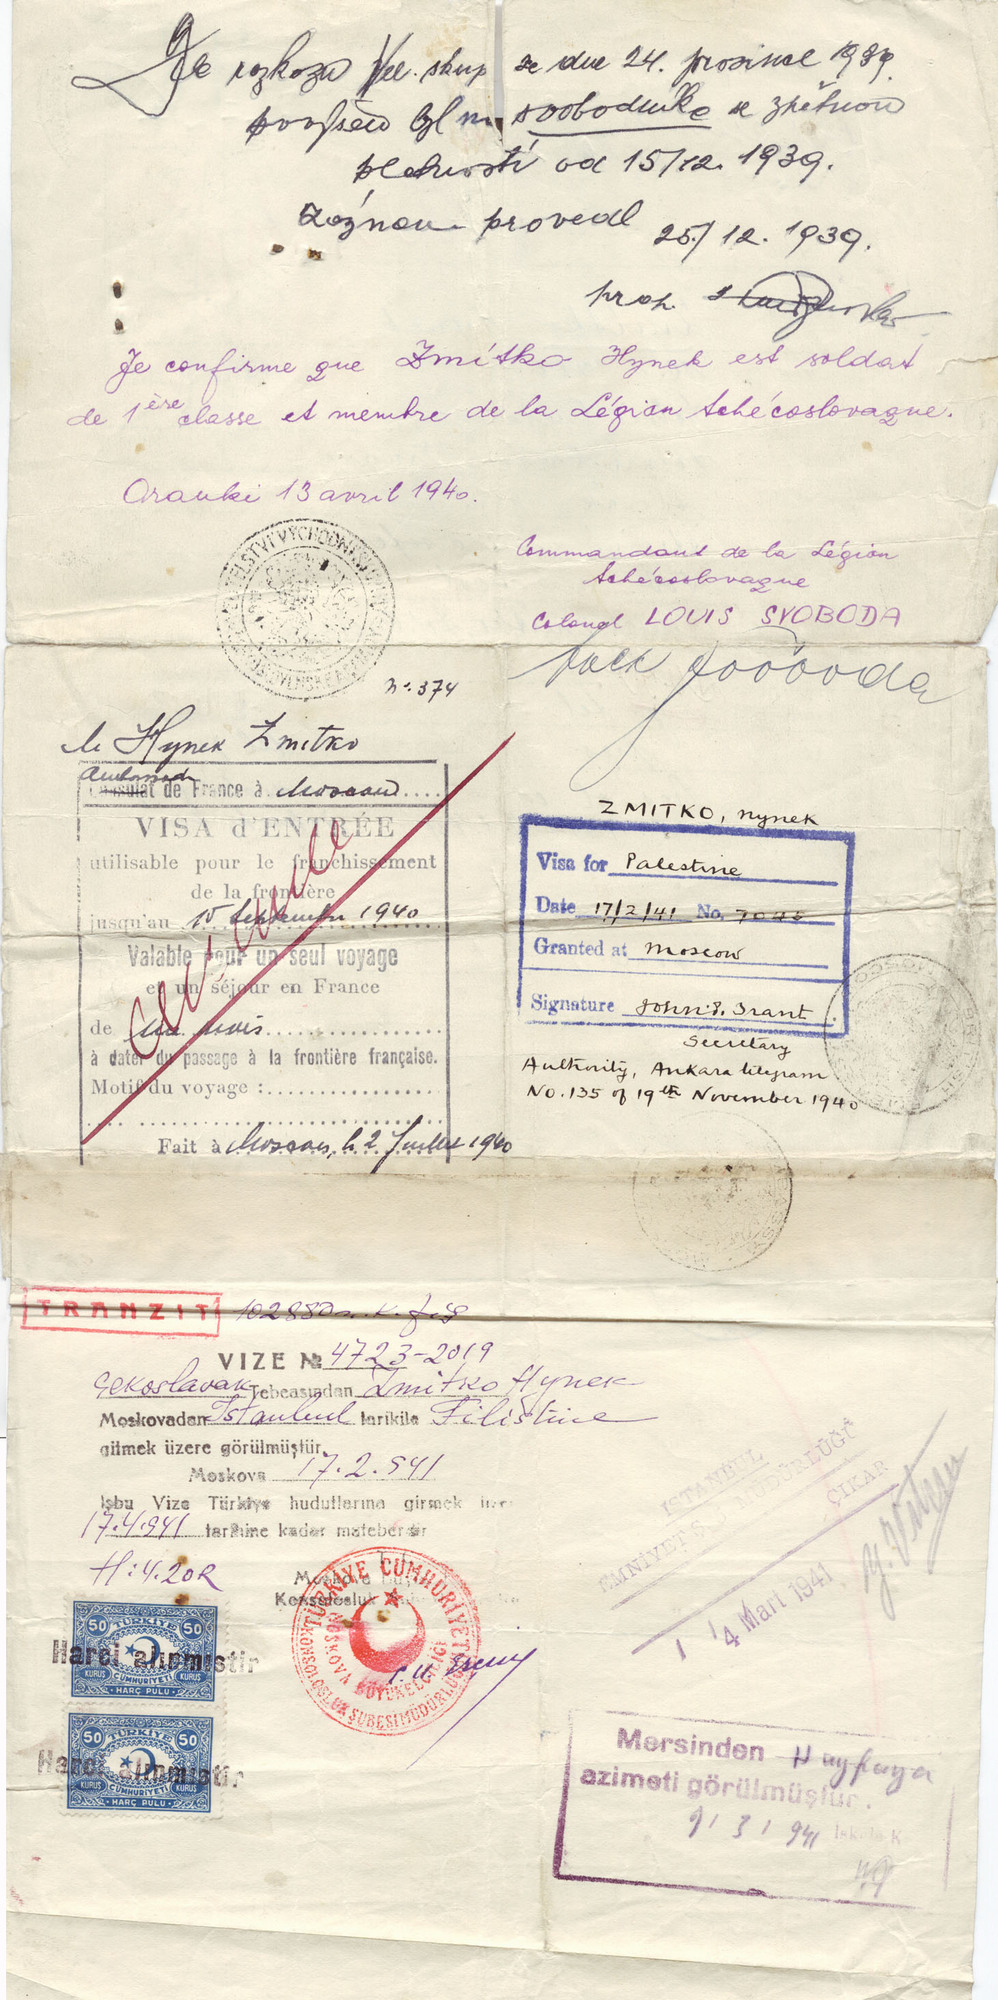 rozkozu Vel. skup. ze dne 24. prosince 1939.
povýšen byl na svobodníka se zpětnou
platností od 15/12. 1939.
Záznam provedl 25/12. 1939.
Je confirme que Zmítko Hynek est soldat
de 1ère classe et membre de la Légion tchécoslovaque.
Oranki 13 avril 1940.
Commandant de la Légion
tchécoslovaque
Colonel LOUIS SVOBODA
Svoboda
No. 374
Hynek Zmitko
Ambassade
Consulat de France à Moscou
VISA d'ENTRÉE
utilisable pour le franchissement
de la frontière
jusqu'au 15 Septembre 1940
Valable pour un seul voyage
et un séjour en France
de un mois
à dater du passage à la frontière française.
Motif du voyage :
Fait à Moscou, le 2 Juillet 1940
ZMITKO, Hynek
Visa for Palestine
Date 17/2/41 No. 7045
Granted at Moscow
Signature John S. Grant
Secretary
Authority, Ankara telegram
No. 135 of 19th November 1940
TRANZIT
VIZE № 4723-2019
Çekoslavak Tebeasından Zmitko Hynek
Moskovadan Istanbul tarikile Filistine
gitmek üzere görülmüştür.
Moskova 17.2.941
Işbu Vize Türkiye hudutlarına girmek
17.4.941 tarihine kadar muteberdir
H: 4.20R
TÜRKİYE CUMHURİYETİ
MOSKOVA BÜYÜKELÇİLİĞİ
KONSOLOSLUK ŞUBESİ MÜDÜRLÜĞÜ
50 TÜRKİYE 50
KURUŞ CUMHURİYETİ KURUŞ
HARÇ PULU
Harci alınmıstir
50 TÜRKİYE 50
KURUŞ CUMHURİYETİ KURUŞ
HARÇ PULU
Harci alınmıstir
ISTANBUL
EMNİYET MÜDÜRLÜĞÜ
ÇIKAR
4 Mart 1941
Mersinden Hayfaya
azimeti görülmüştür.
9/3/941